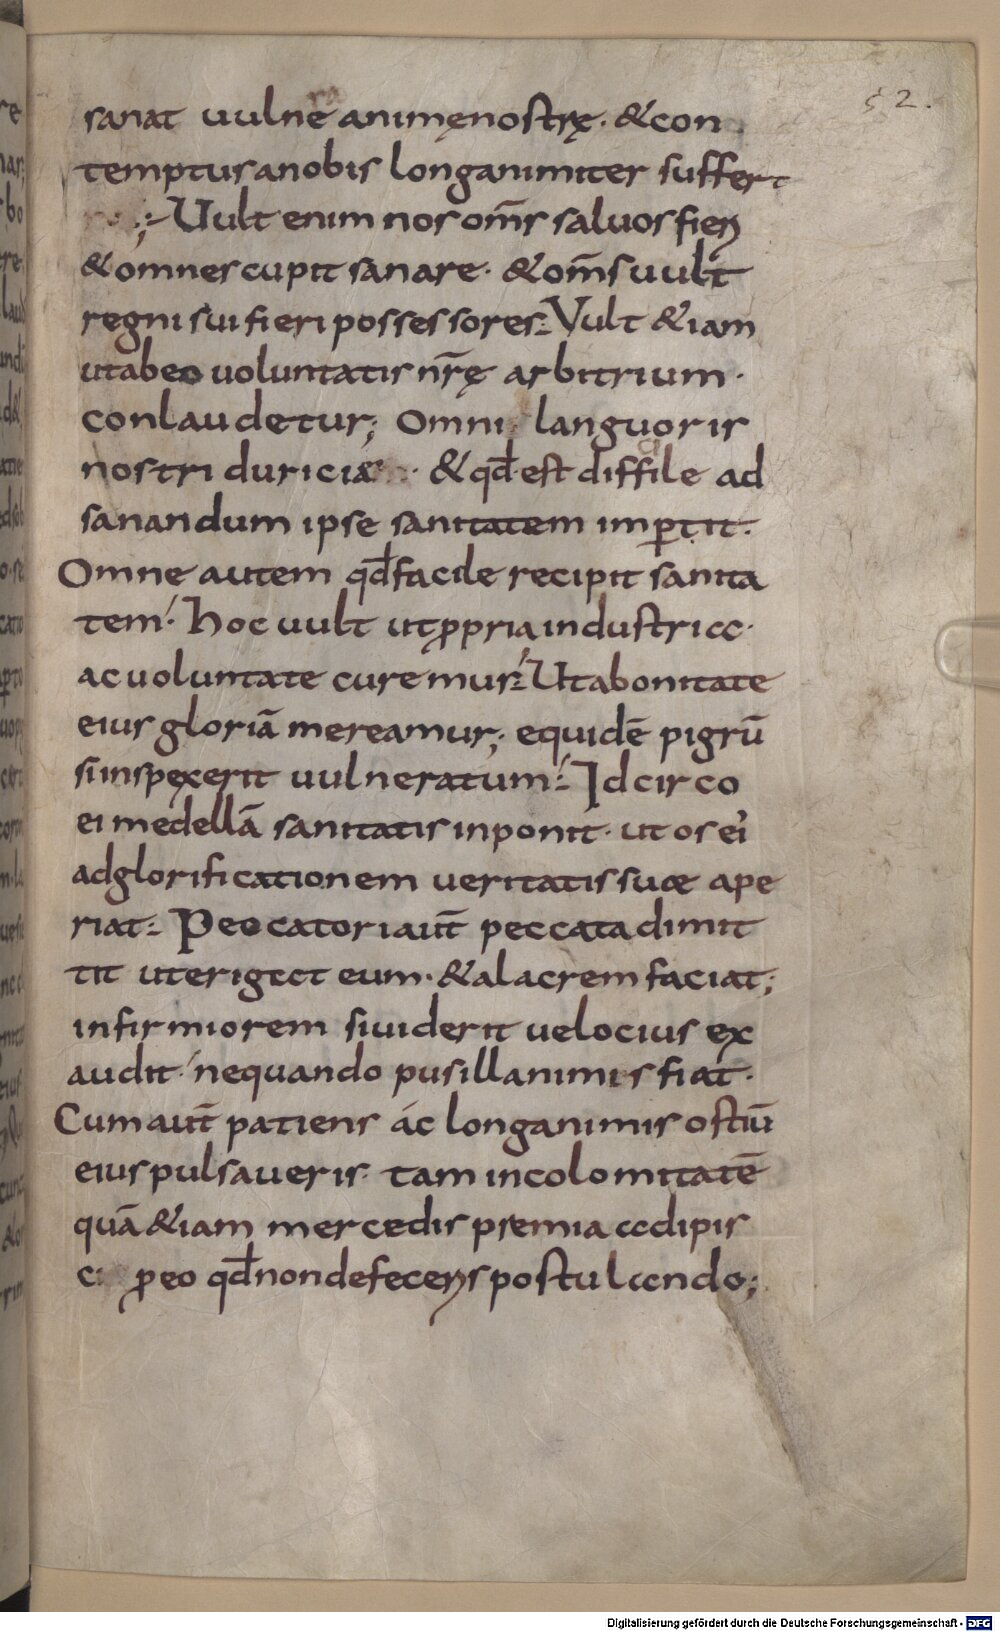 52.
sanat uulnera animęnostrę. &con
temptusanobis longanimiter suffert
;- Uult enim nos om̄s saluos fieri
&omnes cupit sanare. &om̄s uult
regni sui fieri possessores: Vult &iam
utabeo uoluntatis nr̄ę arbitrium.
conlaudetur; Omni languoris
nostri duriciae &qđ est diffile ad
sanandum ipse sanitatem imꝑtit.
Omne autem qđ facile recipit sanita
tem. hoc uult utꝓpria industricc.
ac uoluntate curemur: Utabonitate
eius gloriā mereamur; equidē pigrū
siinspexerit uulneratum: Idcirco
ei medellā sanitatis inponit. ut os ei
adglorificationem ueritatis suae ape
riat: Peccatori aut̄ peccata dimit
tit uterigect eum. &alacrem faciat;
infirmiorem siuiderit uelocius ex
audit. nequando pusillanimis fiat.
Cum aut̄ patiens ác longanimis ostiū
eius pulsaueris. tam incolomitatē
quā &iam mercedis premia ccdipis
c: ꝓeo qđ non defeceris postulccndo;
Digitalisierung gefördert durch die Deutsche Forschungsgemeinschaft - DFG